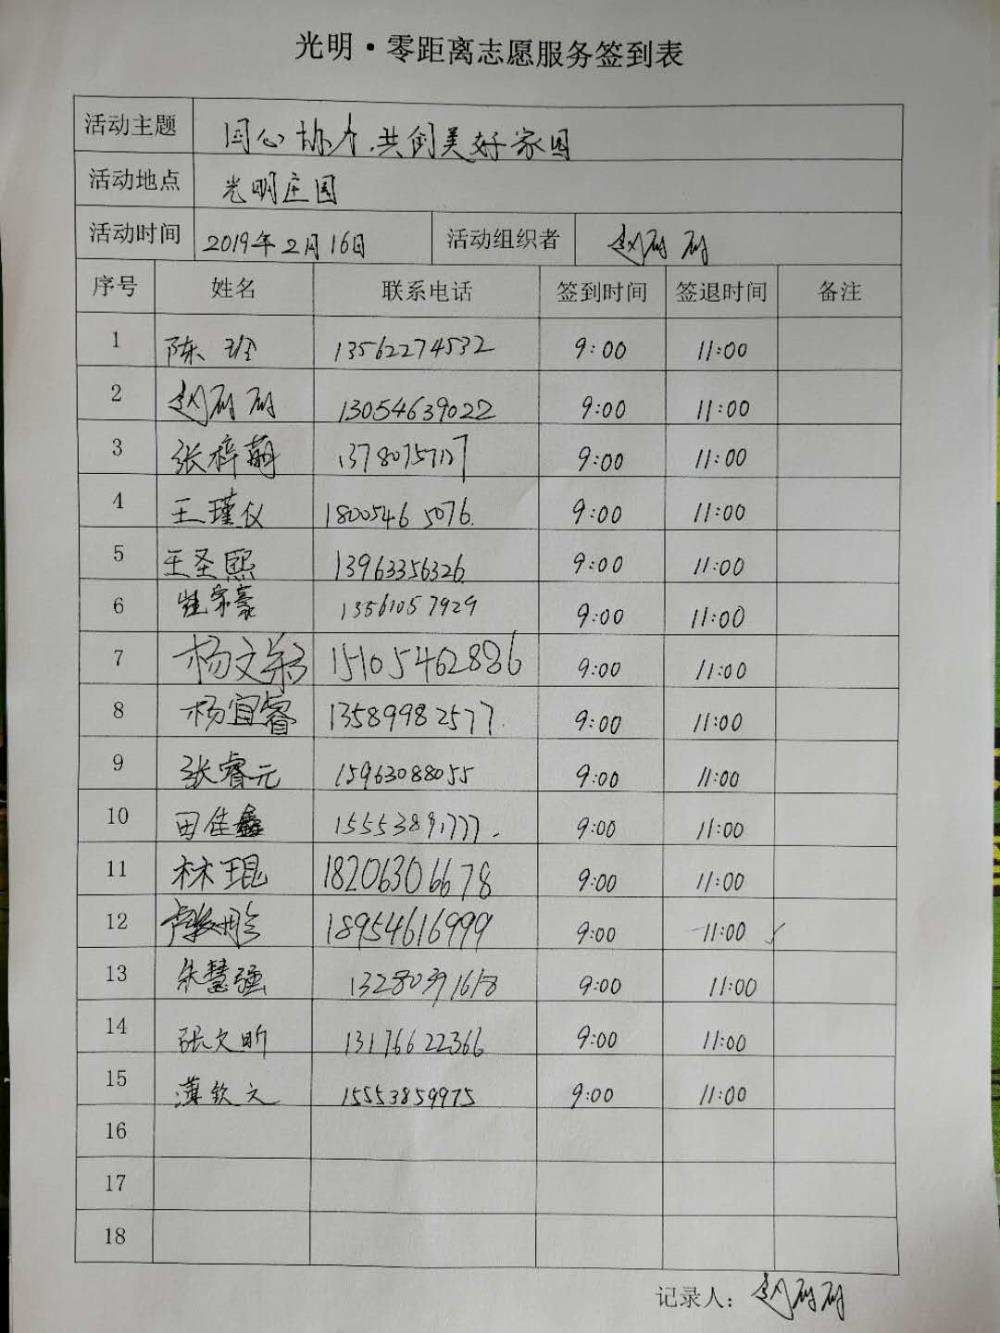 光明·零距离志愿服务签到表
活动主题 同心协力,共创美好家园
活动地点 光明庄园
活动时间 2019年2月16日 活动组织者 赵
序号 姓名 联系电话 签到时间 签退时间 备注
1 陈 13562274532 9:00 11:00
2 赵 13054639022 9:00 11:00
3 张梓萌 9:00 11:00
4 王瑾仪 18005465076. 9:00 11:00
5 王圣熙 13963356326 9:00 11:00
6 崔宗豪 13561057929 9:00 11:00
7 杨文 15105462886 9:00 11:00
8 杨宜睿 13589982577. 9:00 11:00
9 张睿元 15963088055 9:00 11:00
10 田佳鑫 15553891777. 9:00 11:00
11 林琨 18206306678 9:00 11:00
12 18954616999 9:00 11:00 ✓
13 朱慧强 9:00 11:00
14 张文昕 13176622366 9:00 11:00
15 薄钦文 15553859975 9:00 11:00
16
17
18
记录人: 赵